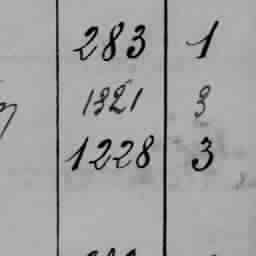 283 1
1321 3
1228 3